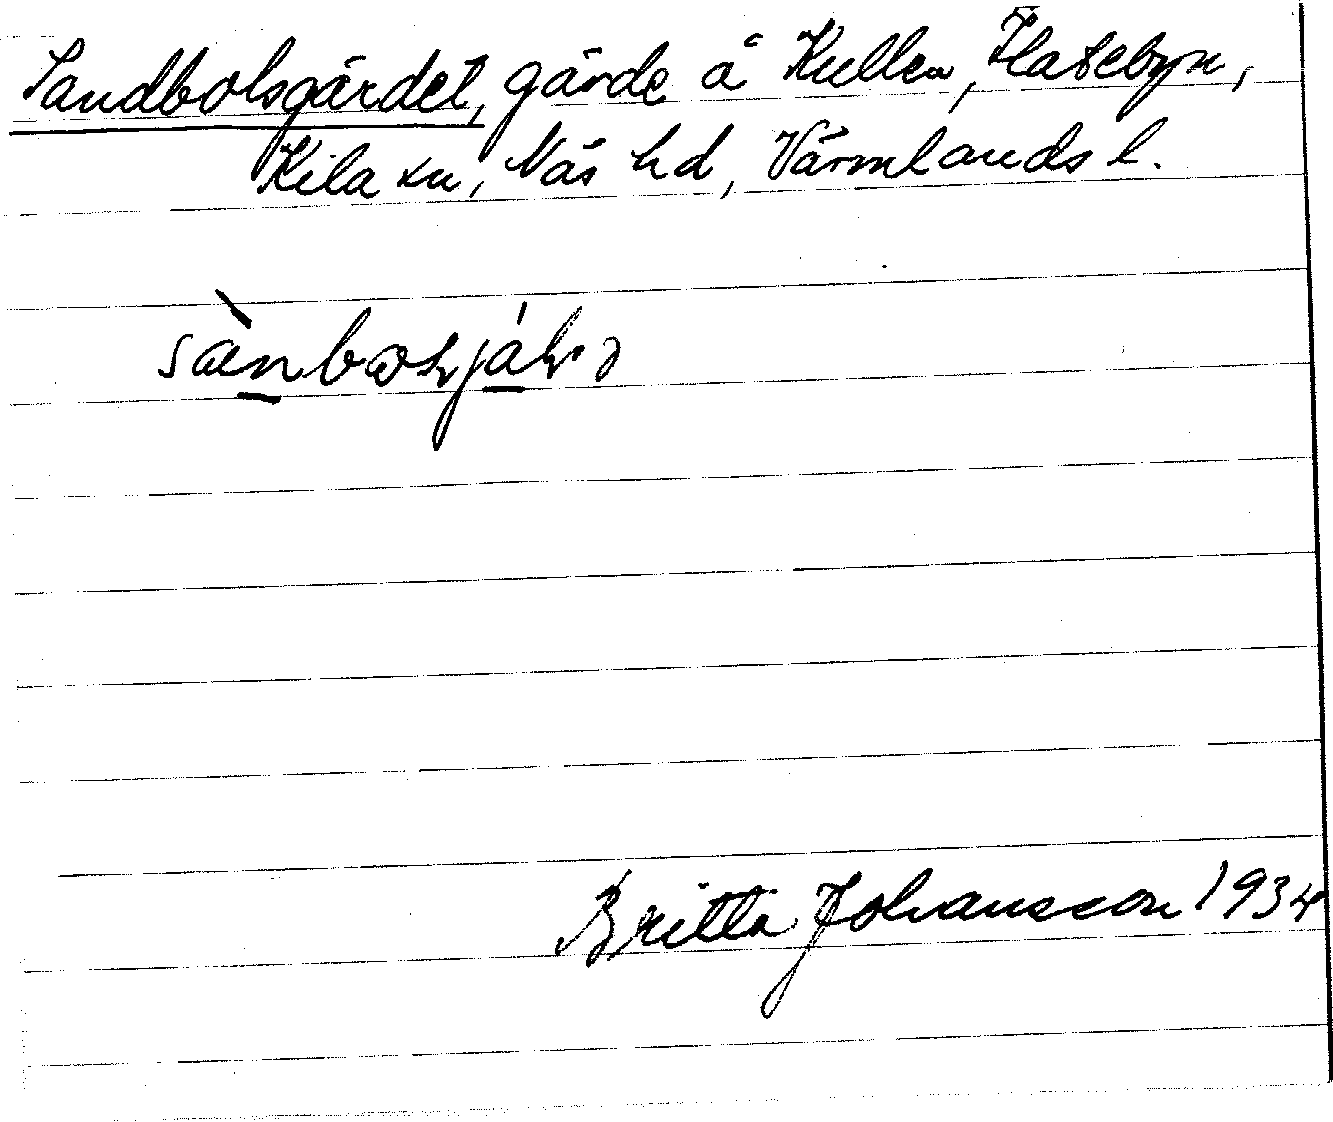 Sandbolsgärdet, gärde å Kullen, Flatebyn,
Kila sn, Näs hd, Värmlands l.
Britta Johansson 1934